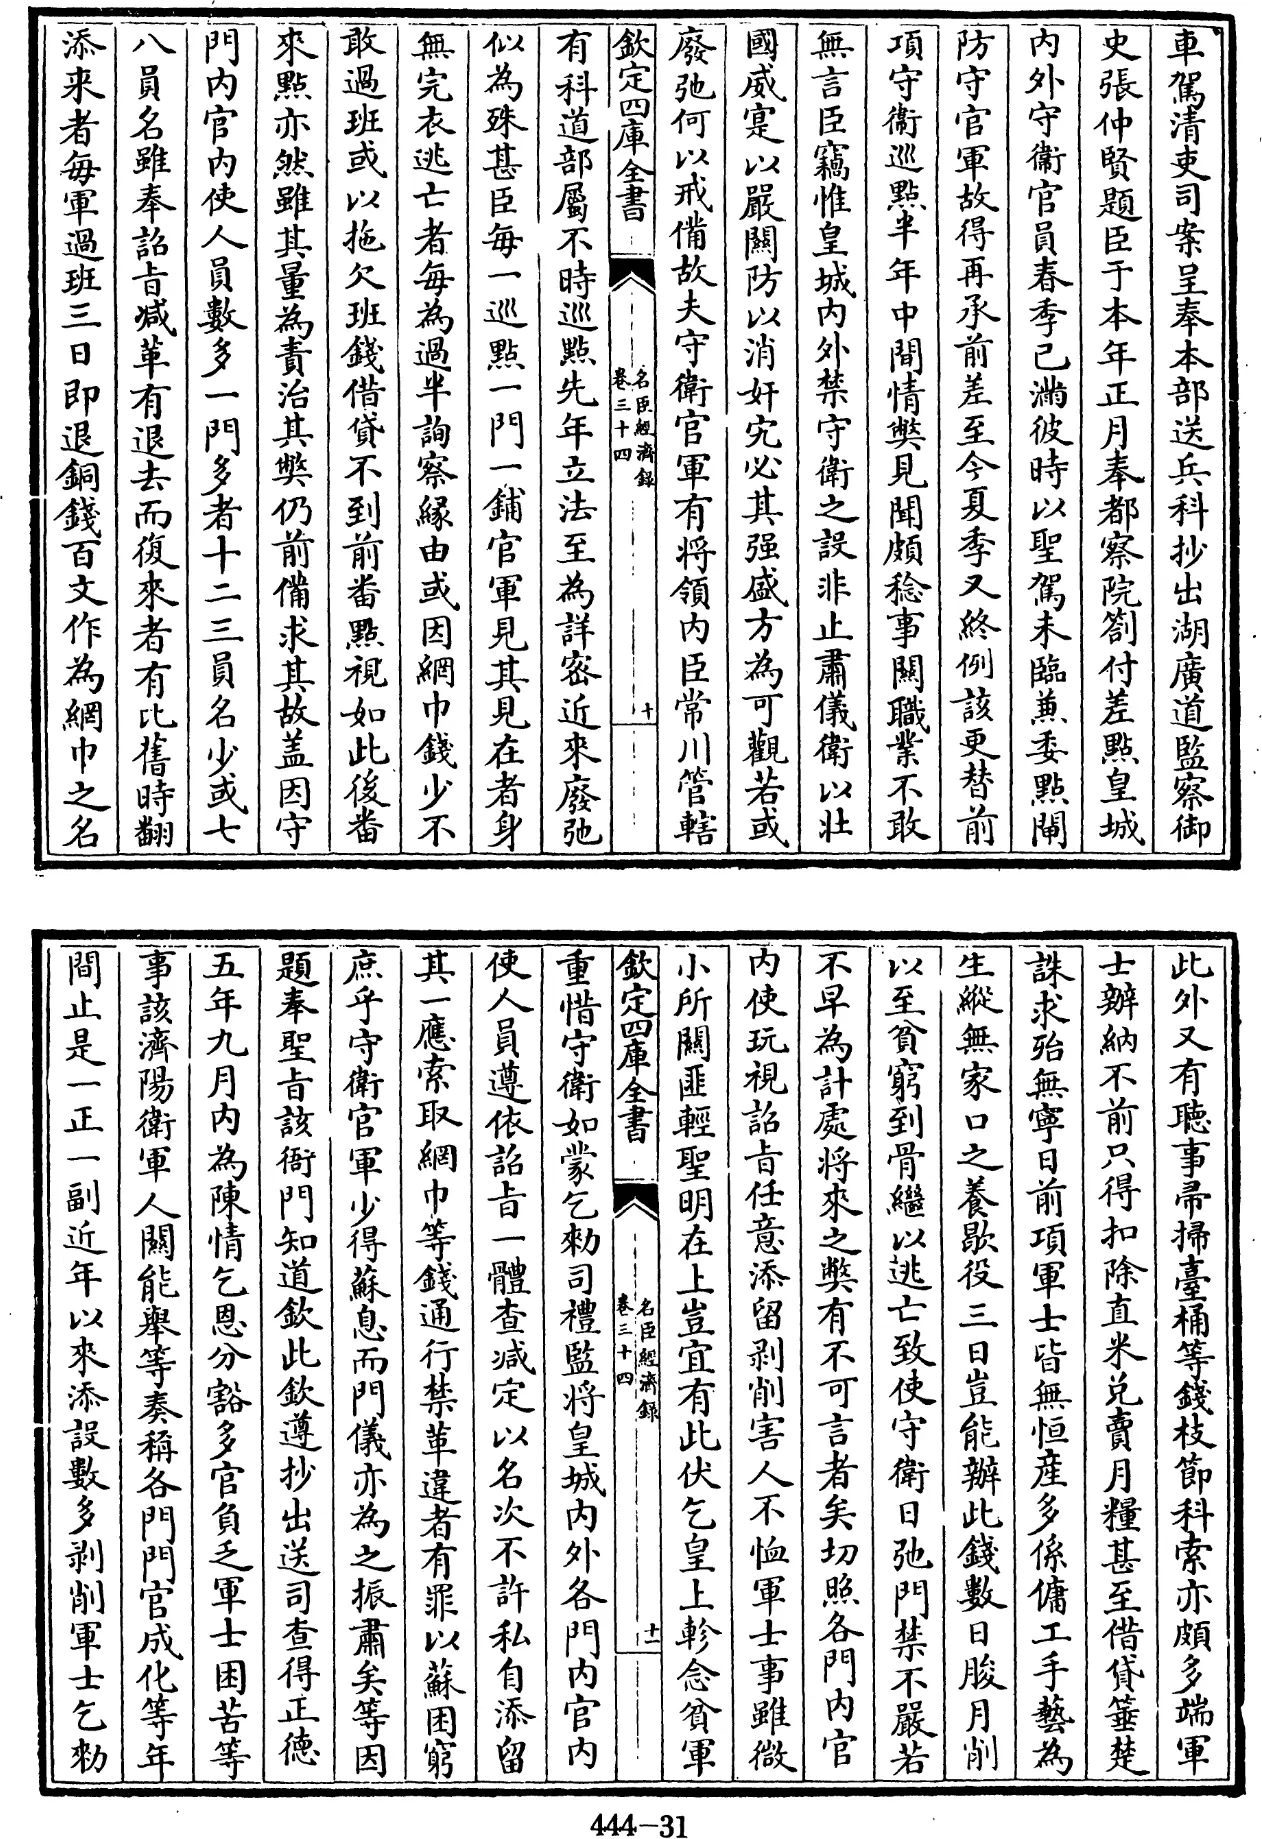 車駕清吏司案呈奉本部送兵科抄出湖廣道監察御
史張仲賢題臣于本年正月奉都察院劄付差點皇城
内外守衞官員春季已滿彼時以聖駕未臨兼委點閘
防守官軍故得再承前差至今夏季又終例該更替前
項守衞巡點半年中間情弊見聞頗稔事關職業不敢
無言臣竊惟皇城内外禁守衛之設非止肅儀衛以壯
國威寔以嚴關防以消奸宄必其强盛方為可觀若或
廢弛何以戒備故夫守衛官軍有將領内臣常川管轄
欽定四庫全書
名臣經濟録
卷三十四
十
有科道部屬不時巡點先年立法至為詳密近來廢弛
似為殊甚臣每一巡點一門一鋪官軍見其見在者身
無完衣逃亡者每為過半詢察緣由或因網巾錢少不
敢過班或以拖欠班錢借貸不到前畨點視如此後畨
來點亦然雖其量為責治其弊仍前備求其故盖因守
門内官内使人員數多一門多者十二三員名少或七
八員名雖奉詔㫖減革有退去而復來者有比舊時翻
添来者每軍過班三日即退銅錢百文作為網巾之名
此外又有聽事帚掃臺桶等錢枝節科索亦頗多端軍
士辦納不前只得扣除直米兑賣月糧甚至借貸箠楚
誅求殆無寧日前項軍士皆無恒産多係傭工手藝為
生縱無家口之養歇役三日豈能辦此錢數日朘月削
以至貧窮到骨繼以逃亡致使守衛日弛門禁不嚴若
不早為計處將來之弊有不可言者矣切照各門内官
内使玩視詔㫖任意添留剥削害人不恤軍士事雖微
小所關匪輕聖明在上豈宜有此伏乞皇上軫念貧軍
欽定四庫全書
名臣經濟録
卷三十四
十一
重惜守衛如蒙乞勅司禮監將皇城内外各門内官内
使人員遵依詔㫖一體查減定以名次不許私自添留
其一應索取網巾等錢通行禁革違者有罪以蘇困窮
庶乎守衛官軍少得蘇息而門儀亦為之振肅矣等因
題奉聖㫖該衙門知道欽此欽遵抄出送司查得正德
五年九月内為陳情乞恩分豁多官負乏軍士困苦等
事該濟陽衛軍人關能舉等奏稱各門門官成化等年
間止是一正一副近年以來添設數多剥削軍士乞勅
444-31